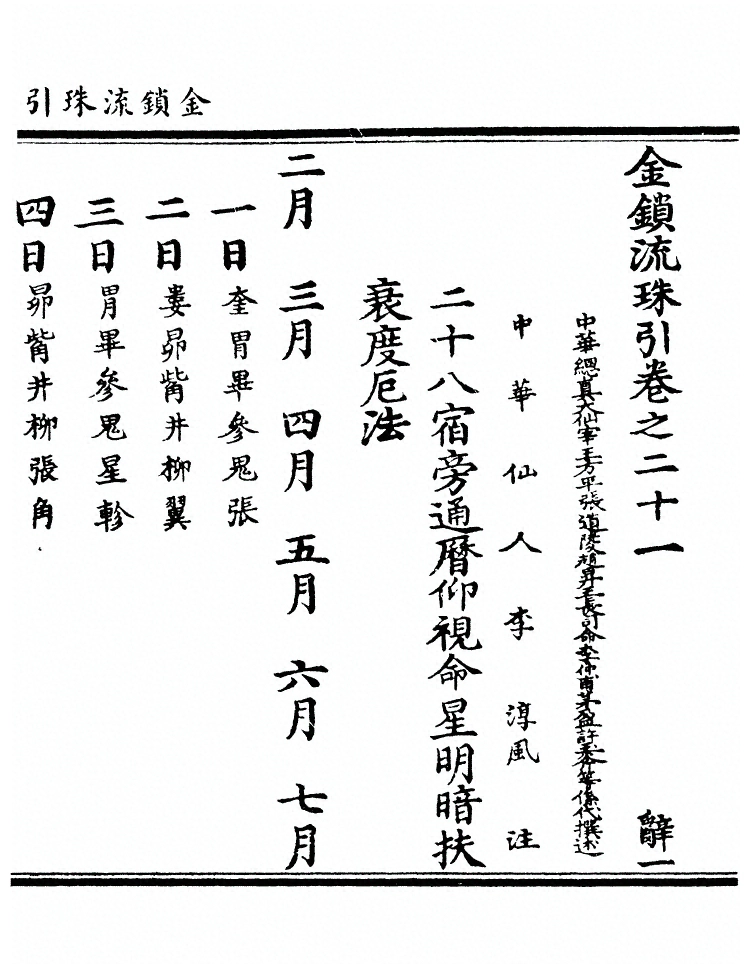 金鎖流珠引
金鎖流珠引卷之二十一 辭一
中華總真大仙宰王方平張道陵趙昇王長司命李仲甫茅盈許玉斧等係代撰述
中華仙人李淳風注
二十八宿旁通曆仰視命星明暗扶
衰度厄法
二月 三月 四月 五月 六月 七月
一日 奎胃畢參鬼張
二日 婁昴觜井柳翼
三日 胃畢參鬼星軫
四日 昴觜井柳張角